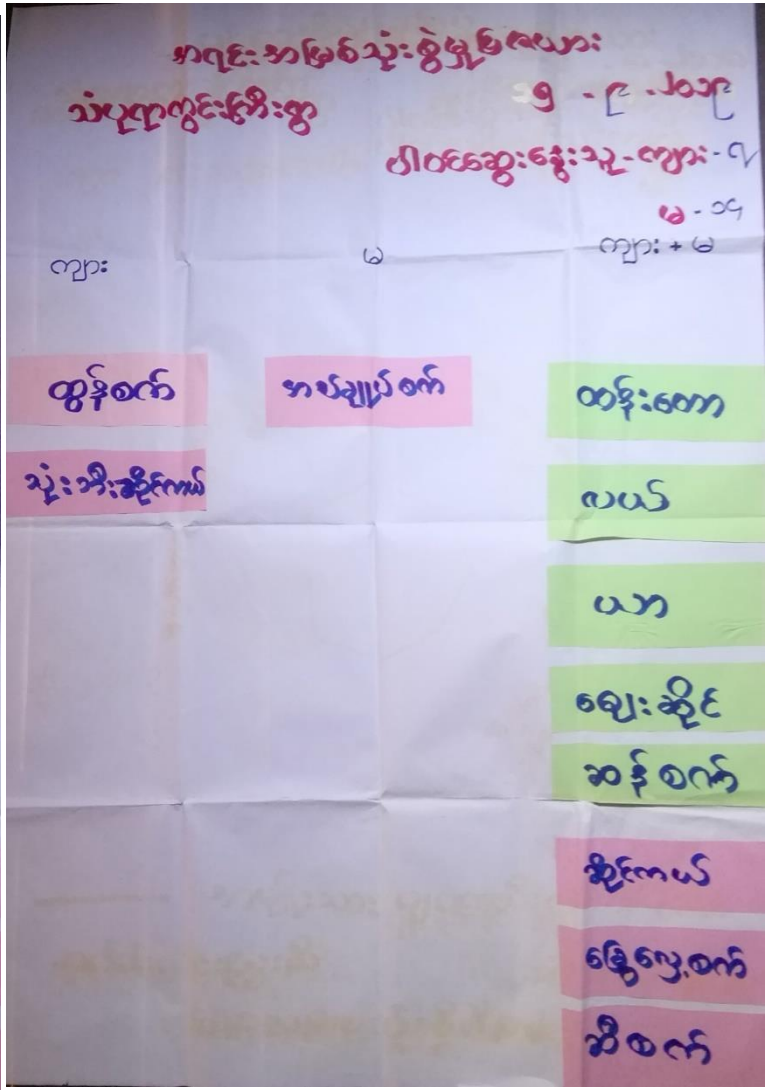 အရင်းအမြစ်သုံးစွဲမှုပြဇယား
သံပုရာကွင်းကြီးရွာ
၅ - ၉ - ၂၀၁၉
ပါဝင်ဆွေးနွေးသူ - ကျား - ၇
မ - ၁၄
ကျား မ ကျား + မ
ထွန်စက် အပ်ချုပ်စက် ထန်းတော
သုံးဘီးဆိုင်ကယ် လယ်
ယာ
ဈေးဆိုင်
ဆန်စက်
ဆိုင်ကယ်
ခြွေလှေ့စက်
ဆီစက်